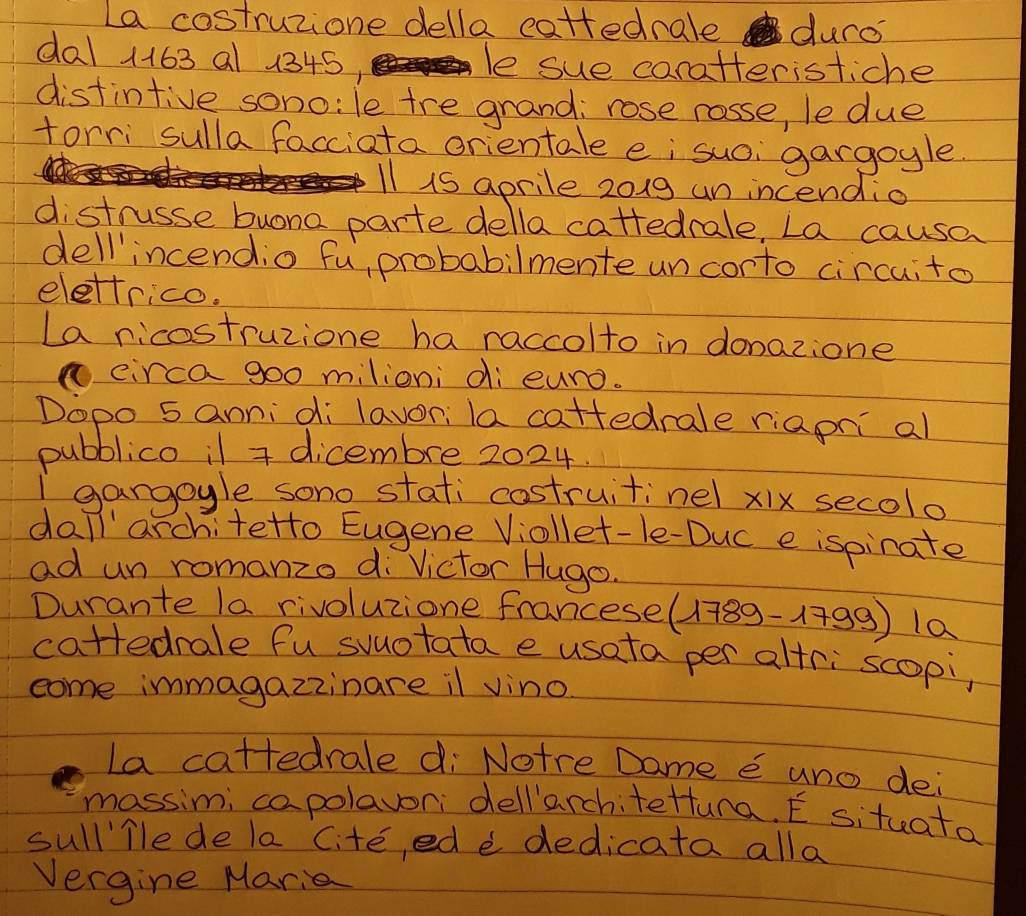 La costruzione della cattedrale durò
dal 1163 al 1345, le sue caratteristiche
distintive sono: le tre grandi rose rosse, le due
torri sulla facciata orientale e i suoi gargoyle.
Il 15 aprile 2019 un incendio
distrusse buona parte della cattedrale. La causa
dell'incendio fu, probabilmente un corto circuito
elettrico.
La ricostruzione ha raccolto in donazione
circa 900 milioni di euro.
Dopo 5 anni di lavori la cattedrale riaprì al
pubblico il 7 dicembre 2024.
I gargoyle sono stati costruiti nel XIX secolo
dall'architetto Eugene Viollet-le-Duc e ispirate
ad un romanzo di Victor Hugo.
Durante la rivoluzione francese (1789-1799) la
cattedrale fu svuotata e usata per altri scopi,
come immagazzinare il vino.
La cattedrale di Notre Dame é uno dei
massimi capolavori dell'architettura. É situata
sull'île de la Cité, ed é dedicata alla
Vergine Maria